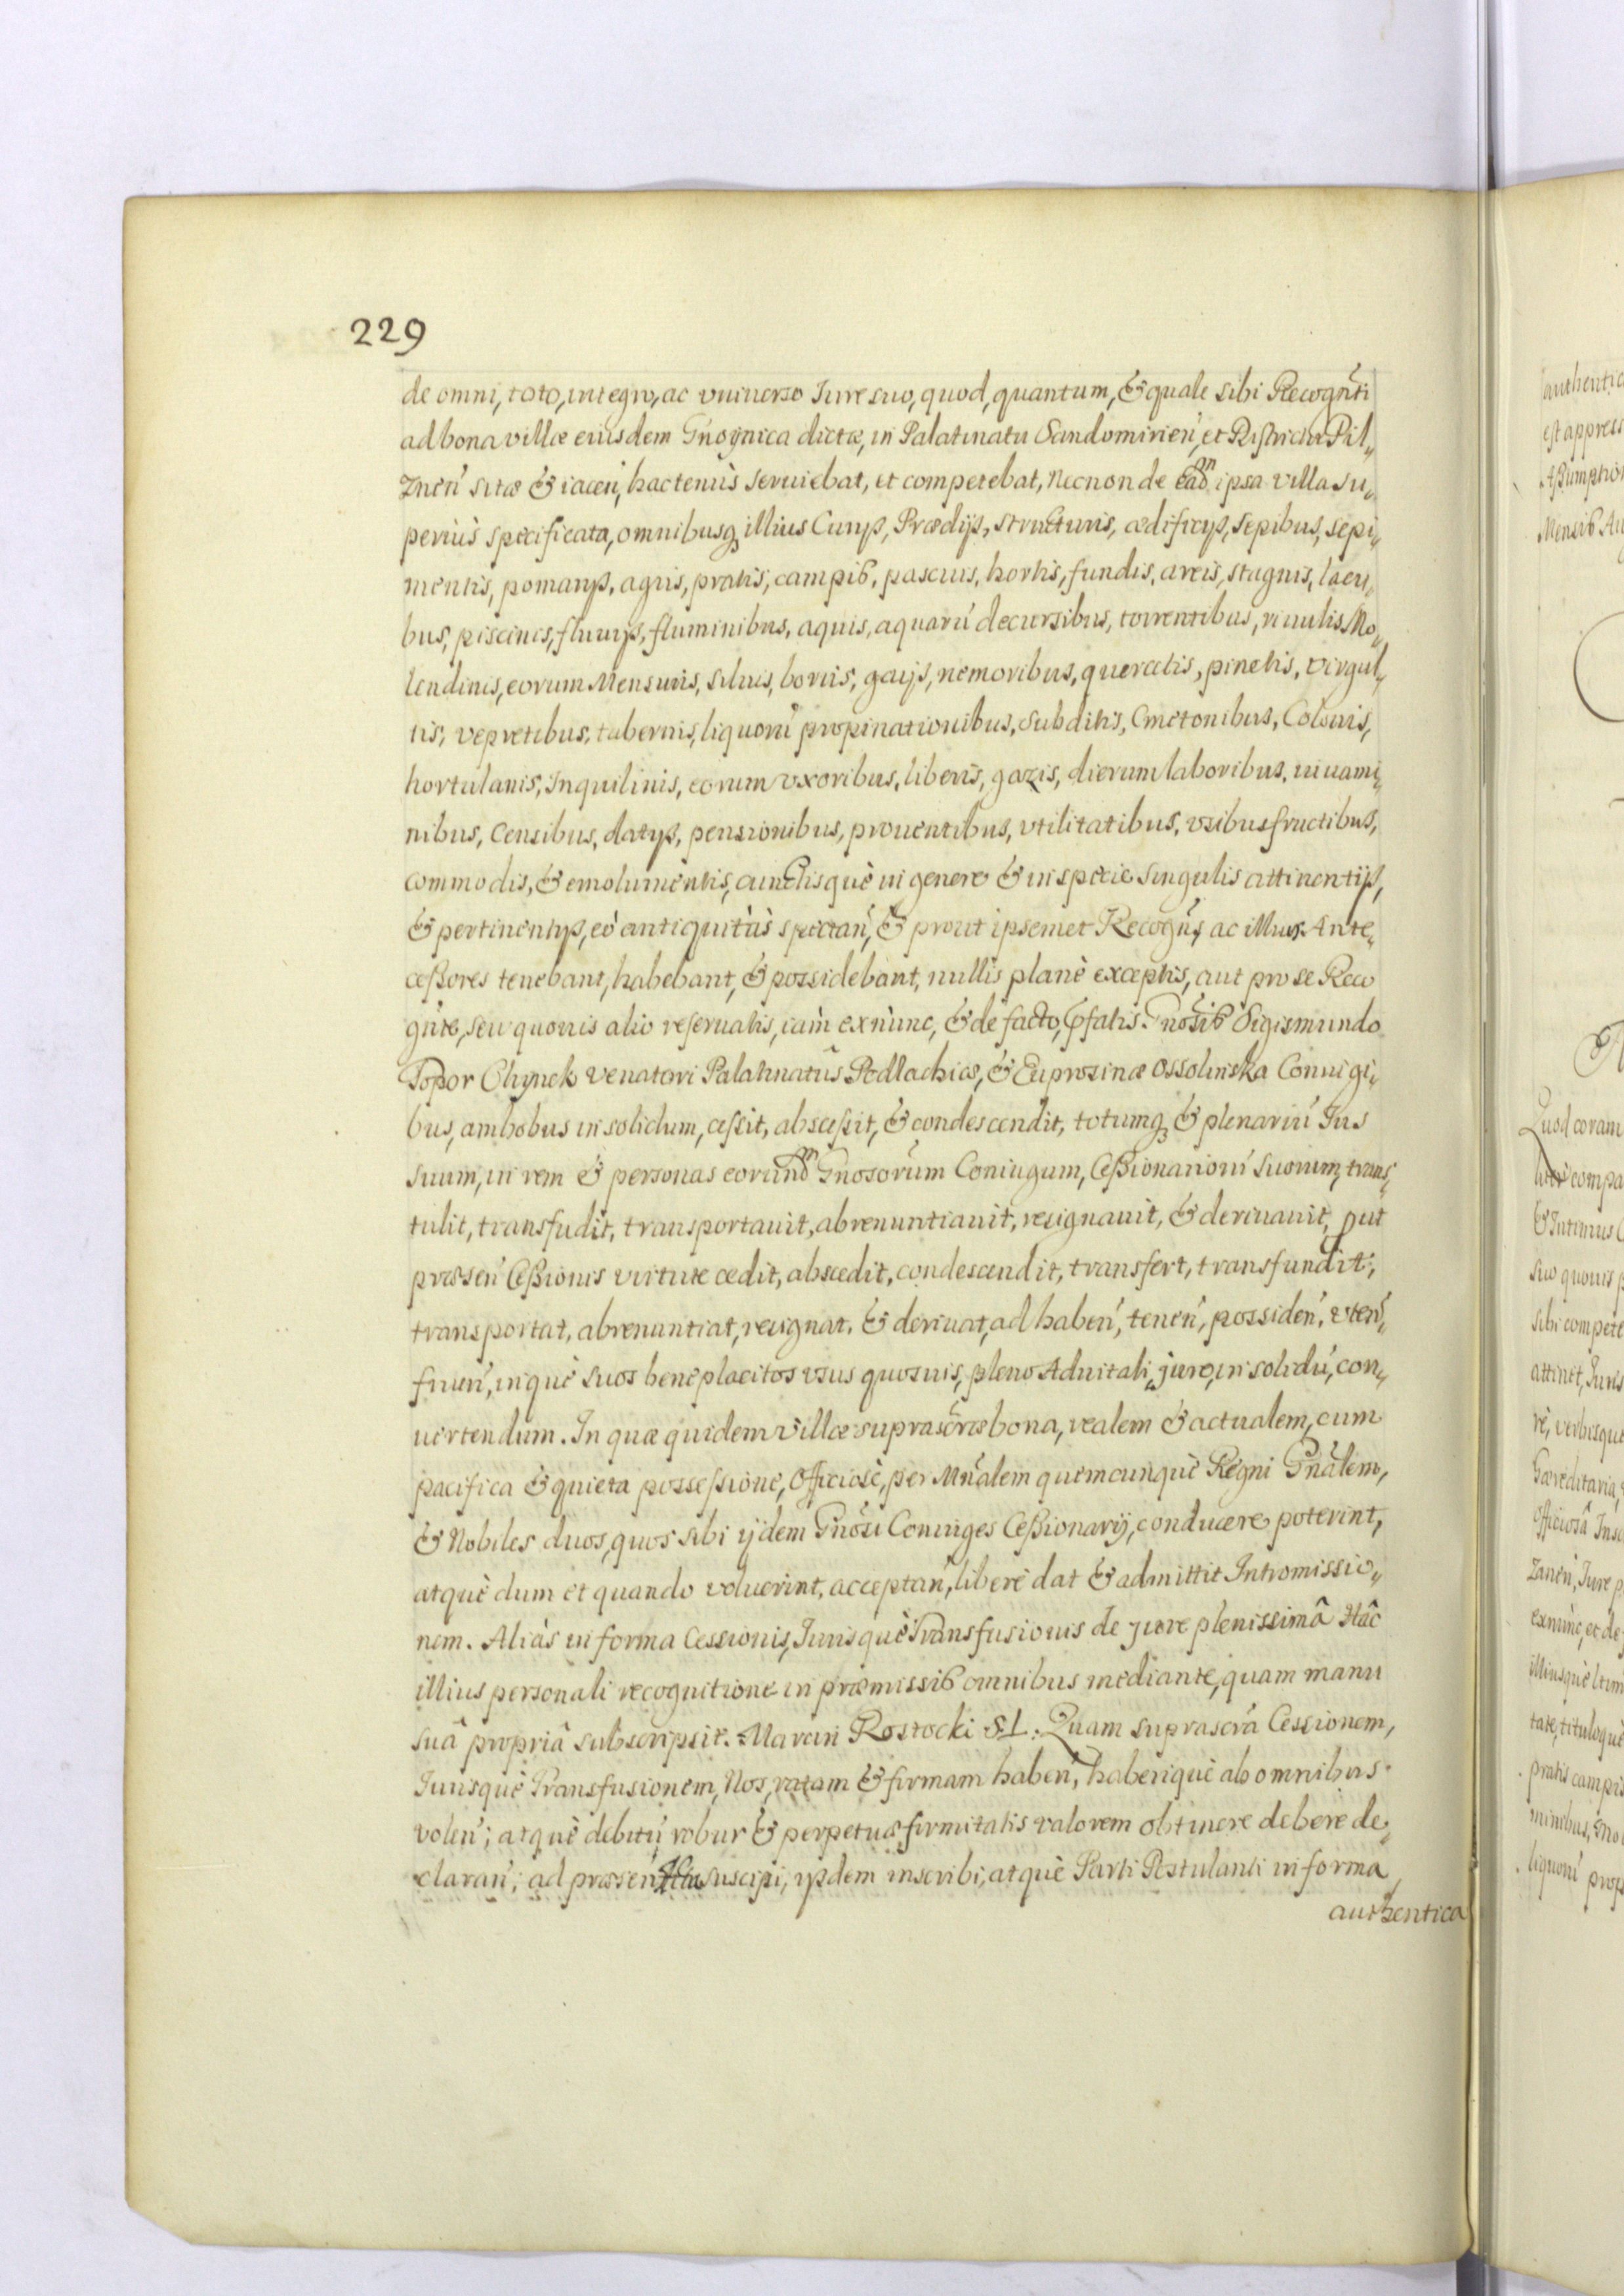 229
de omni, toto, integro, ac vniuerso Iure suo, quod, quantum, & quale sibi Recogn̄ti
ad bona villæ eiusdem Gnoynica dictæ, in Palatinatu Sandomirien̄, et Districtu Pil„
znen̄ sitæ & iacen̄, hactenùs seruiebat, et competebat, Necnon de eadm̄ ipsa villa su„
periùs specificata, omnibusq́ illius Curijs, Prædijs, structuris, ædificijs, sepibus, sepi„
mentis, pomarijs, agris, pratis, campis, pascuis, hortis, fundis, areis, stagnis, lacu„
bus, piscinis, fluuijs, fluminibus, aquis, aquarū decursibus, torrentibus, riuulis Mo„
lendinis, eorum Mensuris, siluis, borris, gaijs, nemoribus, quercetis, pinetis, virgul„
tis, vepretibus, tabernis, liquorū propinationibus, Subditis, Cmetonibus, Colonis,
hortulanis, Inquilinis, eorum vxoribus, liberis, gazis, dierum laboribus, iuuami„
nibus, Censibus, datijs, pensionibus, prouentibus, vtilitatibus, vsibusfructibus,
commodis, & emolumentis, cunctisquè in genere & in specie singulis attinentijs,
& pertinentijs, eò antiquitùs spectan̄, & prout ipsemet Recogn̄s ac illius Ante„
cessores tenebant, habebant, & possidebant, nullis planè exceptis, aut pro se Reco
gn̄te, seu quouis alio reseruatis, iàm exnunc, & de facto, p̄fatis Gnosis Sigismundo
Topor Chynek Venatori Palatinatûs Podlachiæ, & Euprosinæ Ossolinska Coniugi„
bus, ambobus in solidum, cessit, abscessit, & condescendit, totumq́ & plenariū Ius
suum, in rem & personas eorundm̄ Gnosorum Coniugum, Cessionariorū suorum, trans„
tulit, transfudit, transportauit, abrenuntiauit, resignauit, & deriuauit, put
præsen̄ Cessionis virtute cedit, abscedit, condescendit, transfert, transfundit,
transportat, abrenuntiat, resignat, & deriuat, ad haben̄, tenen̄, possiden̄, vten̄,
fruen̄, inquè suos beneplacitos vsus quosuis, pleno Aduitali, jure, in solidū, con„
uertendum. In quæ quidem villæ suprascr̄æ bona, realem & actualem, cum
pacifica & quieta possessione, Officiosè, per Mn̄alem quemcunquè Regni Gn̄alem,
& Nobiles duos, quos sibi ijdem Gnosi Coniuges Cessionarij, conducere poterint,
atquè dum et quando voluerint, acceptan̄, liberè dat & admittit Intromissio„
nem. Aliàs in forma Cessionis, Iurisquè Transfusionis de jure plenissimâ Hâc
illius personali recognitione in præmissis omnibus mediante, quam manu
suâ propriâ subscripsit. Marcin Rostocki SL. Quam suprascr̄a Cessionem,
Iurisquè Transfusionem, Nos, ratam & firmam haben̄, haberiquè ab omnibus
volen̄; atquè debitū robur & perpetuæ firmitatis valorem obtinere debere de„
claran̄; ad præsen̄ Acta suscipi, ijsdem inscribi, atquè Parti Postulanti in forma
authentica